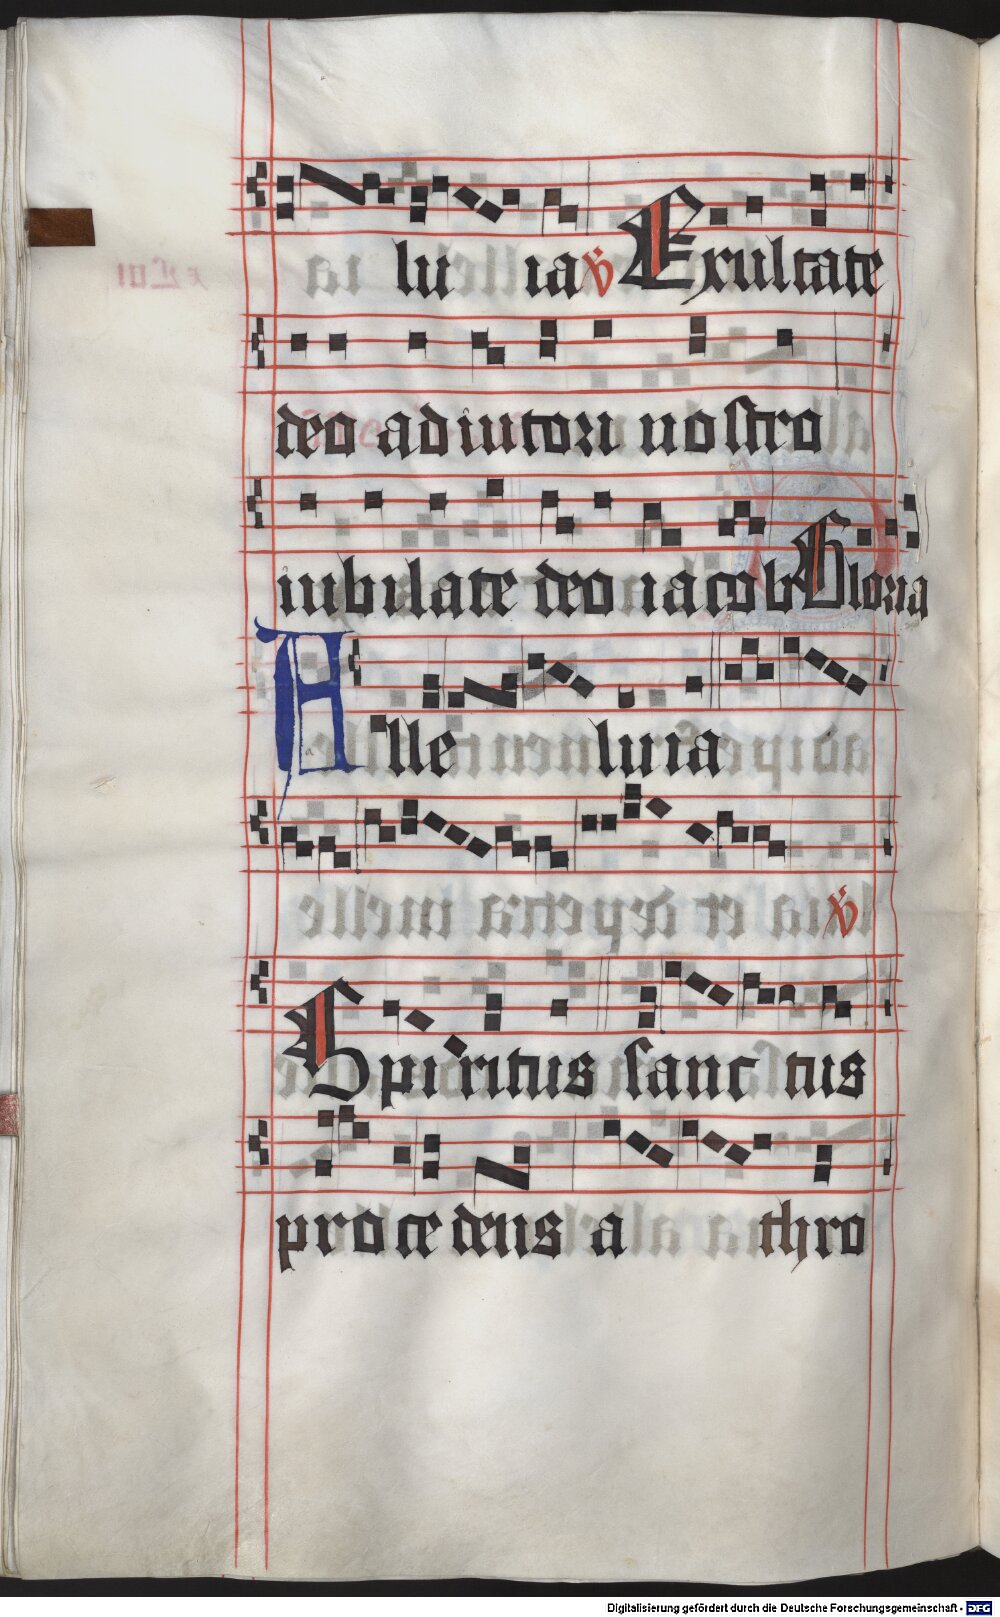 lu ia ℣ Exultate
deo adiutori nostro
iubilate deo iacob Gloria
Alle luia
℣
Spiritus sanctus
procedens a thro
Digitalisierung gefördert durch die Deutsche Forschungsgemeinschaft - DFG